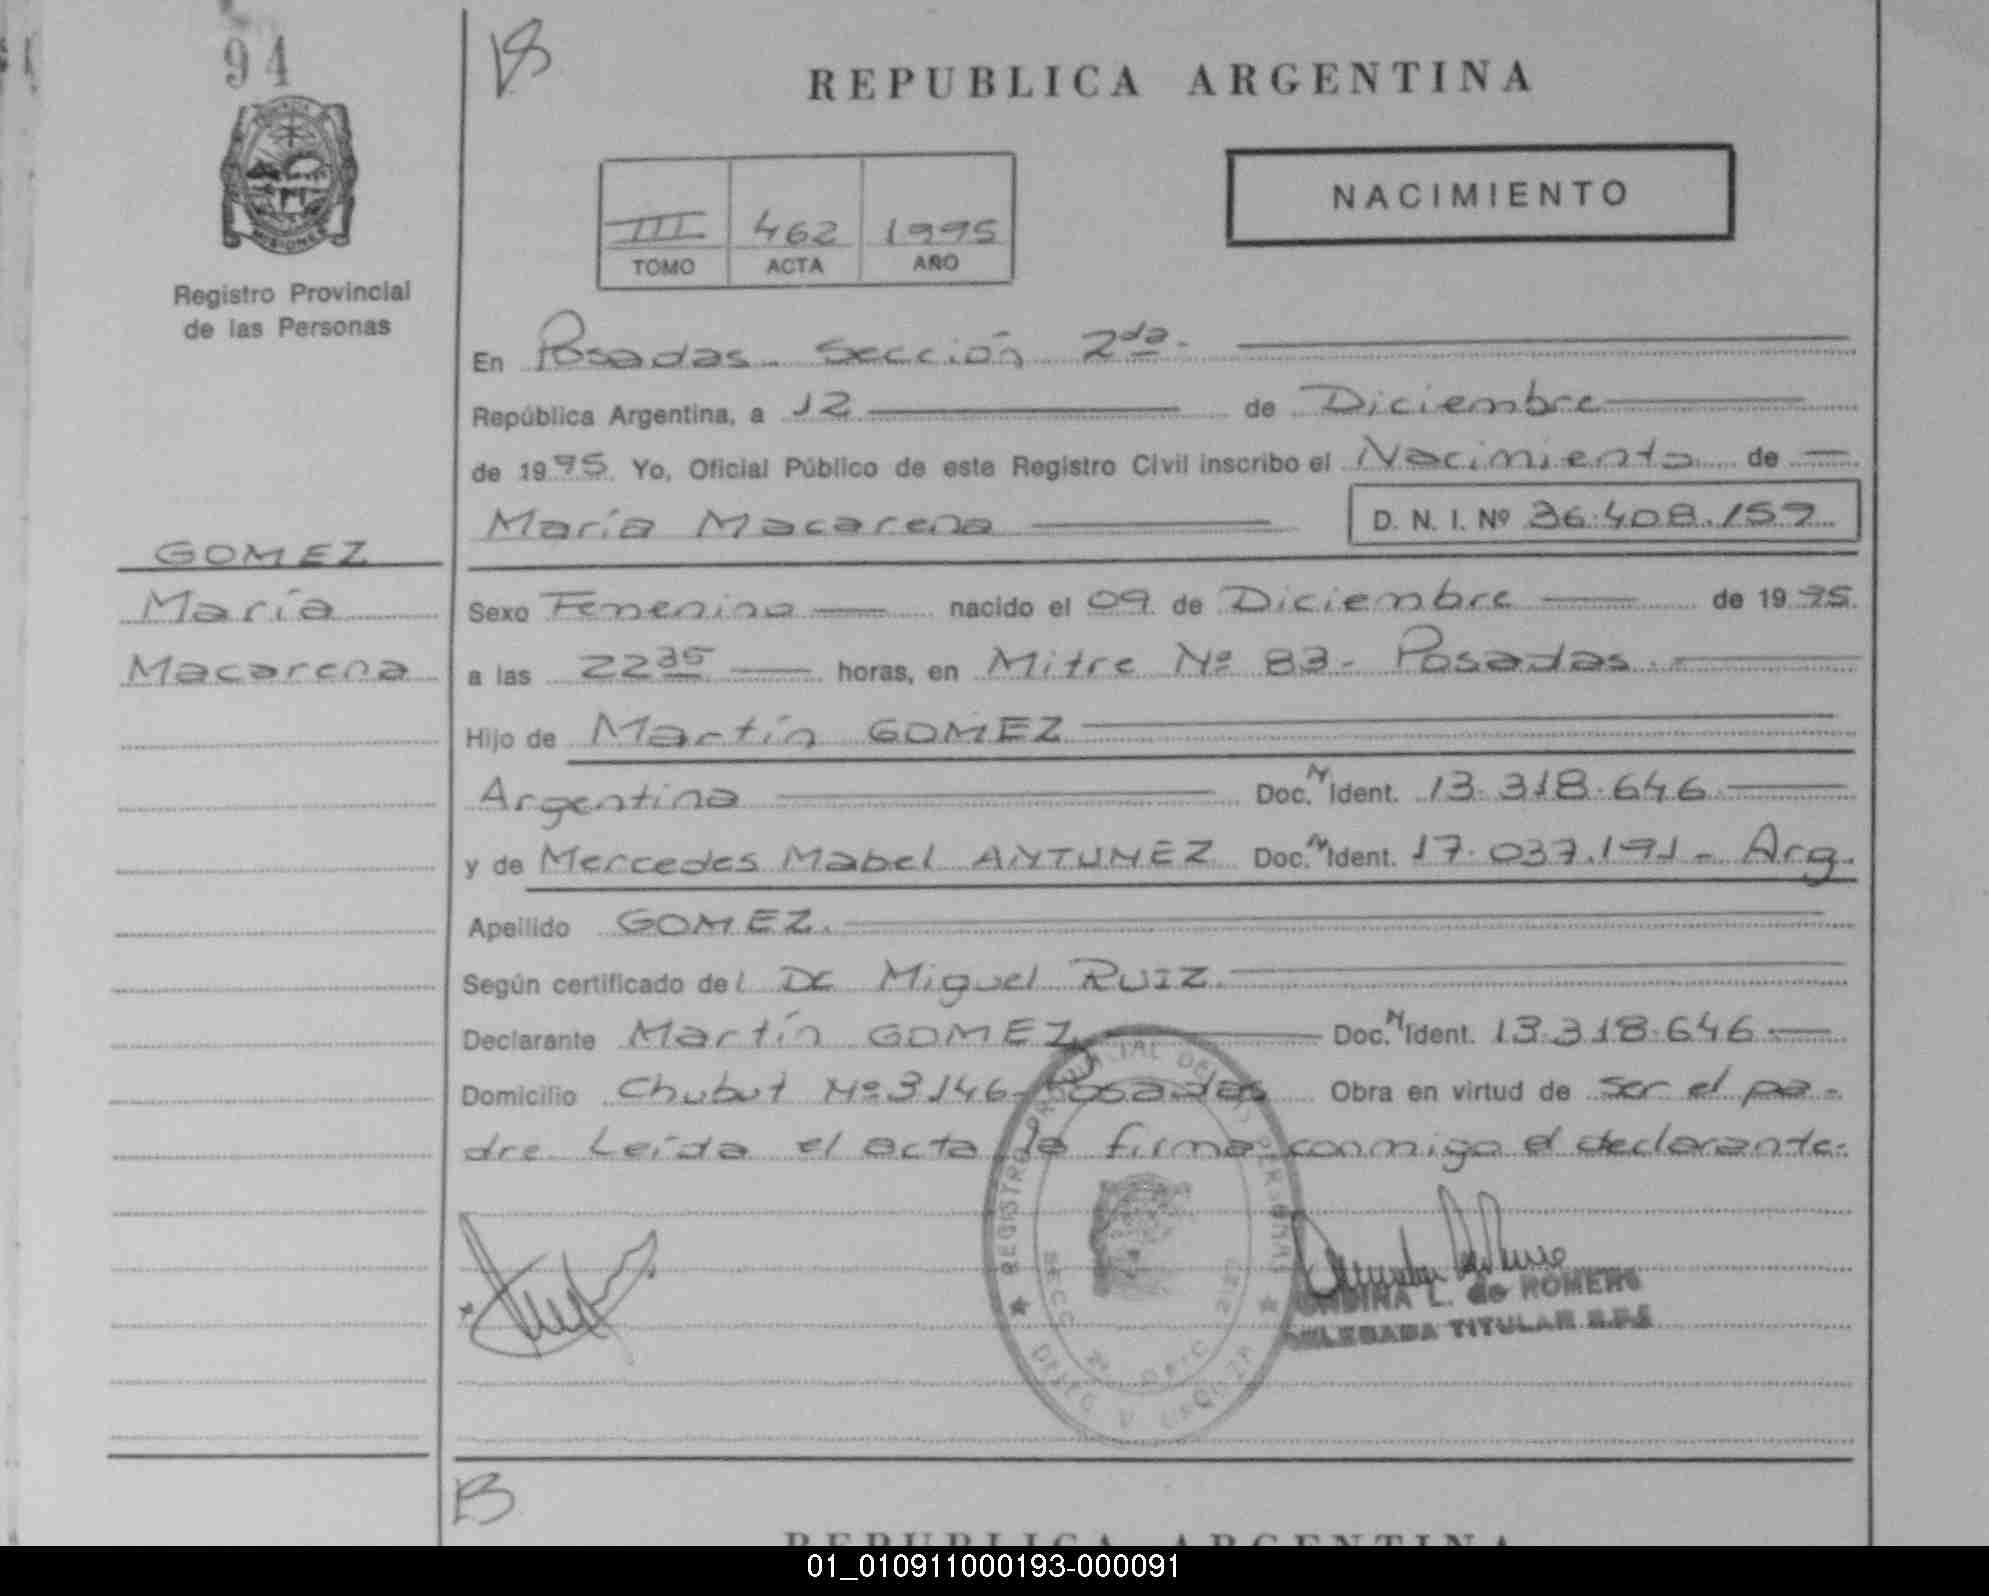 94
REPUBLICA ARGENTINA
NACIMIENTO
III 462 1995
TOMO ACTA AÑO
MISIONES
Registro Provincial
de las Personas
En Posadas Sección 2da.
República Argentina, a 12 de Diciembre
de 1995. Yo, Oficial Público de este Registro Civil inscribo el Nacimiento de
María Macarena D. N. I. Nº 36.408.157
GOMEZ
María
Macarena
Sexo Femenino nacido el 09 de Diciembre de 1995.
a las 22 35 horas, en Mitre Nº 83- Posadas.
Hijo de Martín GOMEZ
Argentina Doc. N Ident. 13.318.646
y de Mercedes Mabel ANTUNEZ Doc. N Ident. 17.037.191- Arg.
Apellido GOMEZ.
Según certificado del Dr Miguel RUIZ.
Declarante Martín GOMEZ Doc. N Ident. 13.318.646
Domicilio Chubut Nº 3146- Posadas Obra en virtud de ser el pa-
dre. Leída el acta la firma conmigo el declarante.
REGISTRO
L. de ROMERO
DELEGADA TITULAR
B
REPUBLICA ARGENTINA
01_010911000193-000091